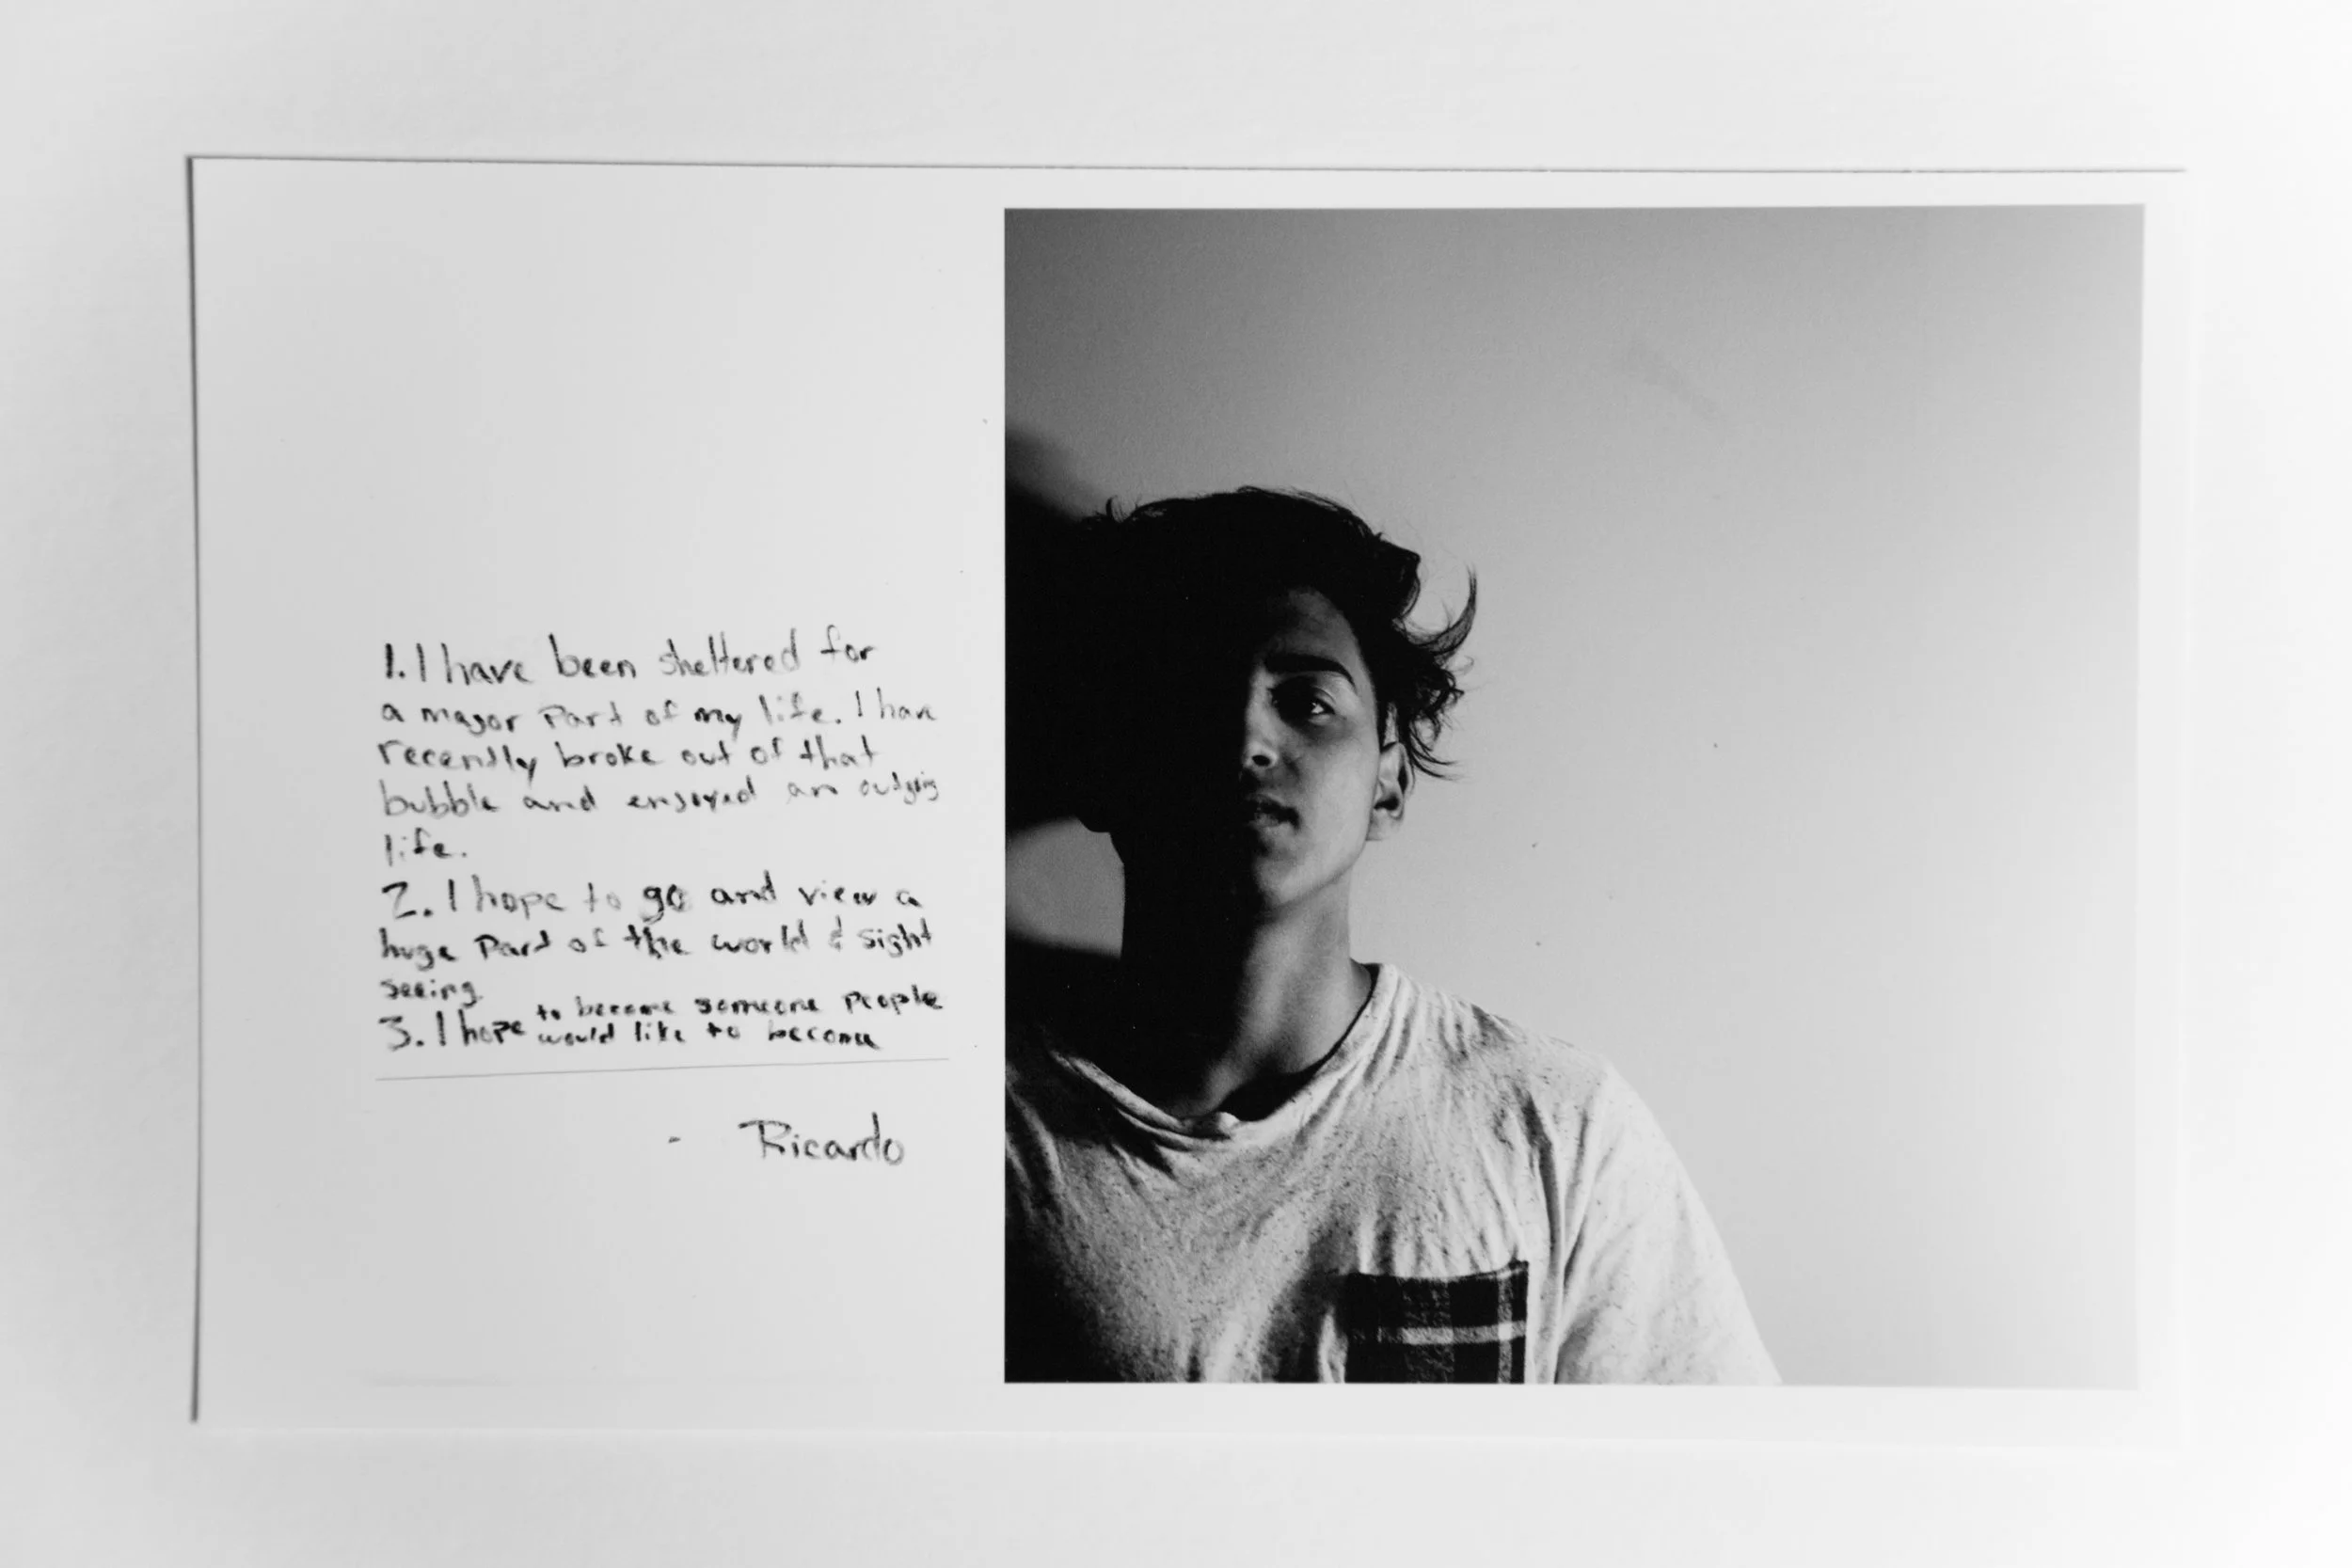 1. I have been sheltered for
a major part of my life. I have
recently broke out of that
bubble and enjoyed an outgoing
life.
2. I hope to go and view a
huge part of the world & sight
seeing
3. I hope to become someone people
would like to become
- Ricardo